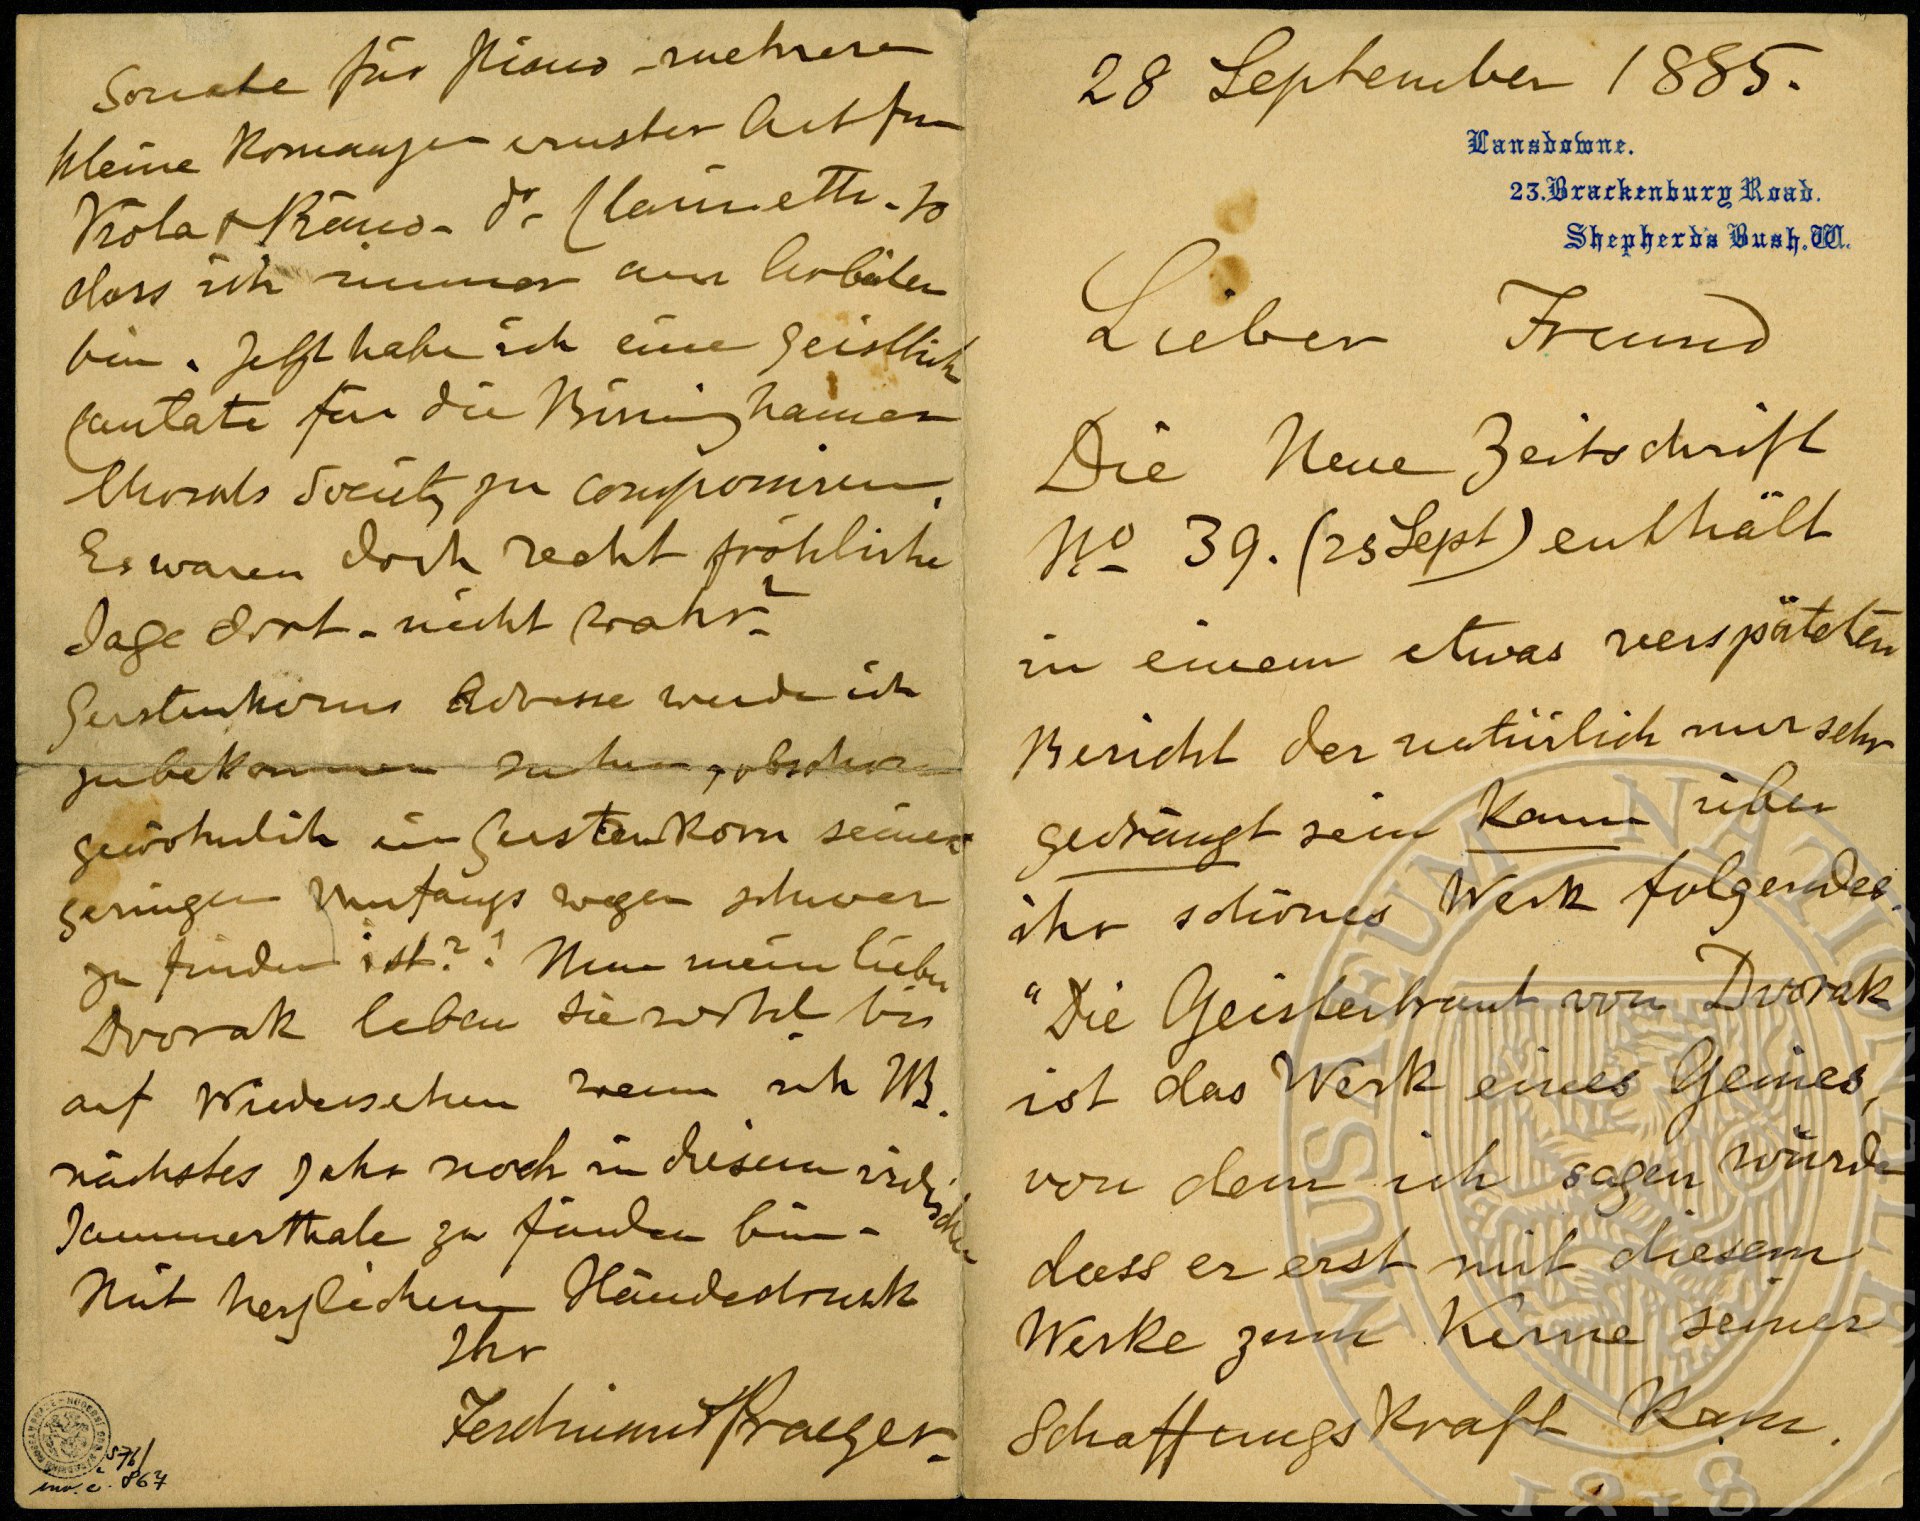 28 September 1885.
Lansdowne.
23. Brackenbury Road.
Shepherds Bush. W.
Lieber Freund
Die Neue Zeitschrift
No 39. (25 Sept) enthält
in einem etwas verspäteten
Bericht der natürlich nur sehr
gedrängt sein kann über
ihr schönes Werk folgendes.
"Die Geisterbraut von Dvorak
ist das Werk eines Genies,
von dem ich sagen würde
dass er erst mit diesem
Werke zum Kerne seiner
Schaffungskraft kam.
Sonate für Piano – mehrere
kleine Romanzen ernster Art für
Viola & Piano – do Clarinette – so
dass ich immer am Arbeiten
bin. Jetzt habe ich eine geistlich
Cantate für die Birminghamer
Chorals Society zu componiren.
Es waren doch recht fröhliche
Tage dort – nicht wahr?
Gerstenkorns Adresse werde ich
zubekommen suchen, obschon
gewöhnlich ein Gerstenkorn seines
geringen Umfangs wegen schwer
zu finden ist?! Nun mein lieber
Dvorak leben Sie wohl bis
auf Wiedersehen wenn ich
nächstes Jahr noch in diesem irdischen
Jammerthale zu finden bin –
Mit herzlichem Händedruck
Ihr
Ferdinand Praeger –
576/
inv. č. 867
MUSAEUM NATIONALE
1818